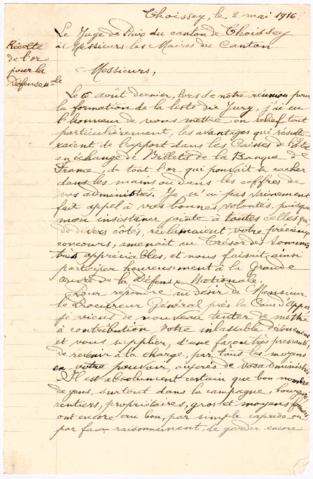 Choissey, le 2 mai 1916
Le Juge de Paix du canton de Choissey
à Messieurs les Maires du Canton
Récolte
de l'or
pour la
Défense
Messieurs,
Le 6 août dernier, lors de notre réunion pour
la formation de la liste du Jury, j'ai eu
l'honneur de vous mettre en relief tout
particulièrement, les avantages qui résulte-
raient de l'apport dans les Caisses de l'État
en échange de Billets de la Banque de
France, de tout l'or qui pouvait se cacher
dans les mains ou dans les coffres de
vos administrés. Je n'ai pas vainement
fait appel à vos bonnes volontés, puisque
mon insistance jointe à toutes celles qui
de divers côtés, réclamaient votre précieux
concours, amenait au Trésor des sommes
très appréciables, et nous faisait ainsi
participer heureusement à la Grande
œuvre de la Défense Nationale.
Pour répondre au désir de Monsieur
le Procureur Général près la Cour d'Appel
je viens de nouveau tenter de mettre
à contribution votre inlassable dévouement
et vous supplier, d'une façon très pressante
de revenir à la charge, par tous les moyens
en votre pouvoir, auprès de vos administrés.
Il est absolument certain que bon nombre
de gens, surtout dans la campagne,
rentiers, propriétaires, gros et moyens
ont encore cru bon, par simple caprice ou
par faux raisonnement, de garder encore